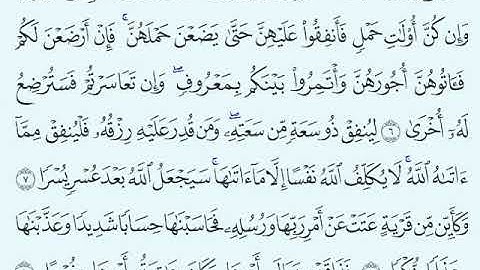 وَإِن كُنَّ أُوْلَٰتِ حَمْلٖ فَأَنفِقُواْ عَلَيْهِنَّ حَتَّىٰ يَضَعْنَ حَمْلَهُنَّۚ فَإِنْ أَرْضَعْنَ لَكُمْ
فَـَٔاتُوهُنَّ أُجُورَهُنَّ وَأْتَمِرُواْ بَيْنَكُم بِمَعْرُوفٖۖ وَإِن تَعَاسَرْتُمْ فَسَتُرْضِعُ
لَهُۥٓ أُخْرَىٰ ٦ لِيُنفِقْ ذُو سَعَةٖ مِّن سَعَتِهِۦۖ وَمَن قُدِرَ عَلَيْهِ رِزْقُهُۥ فَلْيُنفِقْ مِمَّآ
ءَاتَىٰهُ ٱللَّهُۚ لَا يُكَلِّفُ ٱللَّهُ نَفْسًا إِلَّا مَآ ءَاتَىٰهَاۚ سَيَجْعَلُ ٱللَّهُ بَعْدَ عُسْرٖ يُسْرٗا ٧
وَكَأَيِّن مِّن قَرْيَةٍ عَتَتْ عَنْ أَمْرِ رَبِّهَا وَرُسُلِهِۦ فَحَاسَبْنَٰهَا حِسَابٗا شَدِيدٗا وَعَذَّبْنَٰهَا